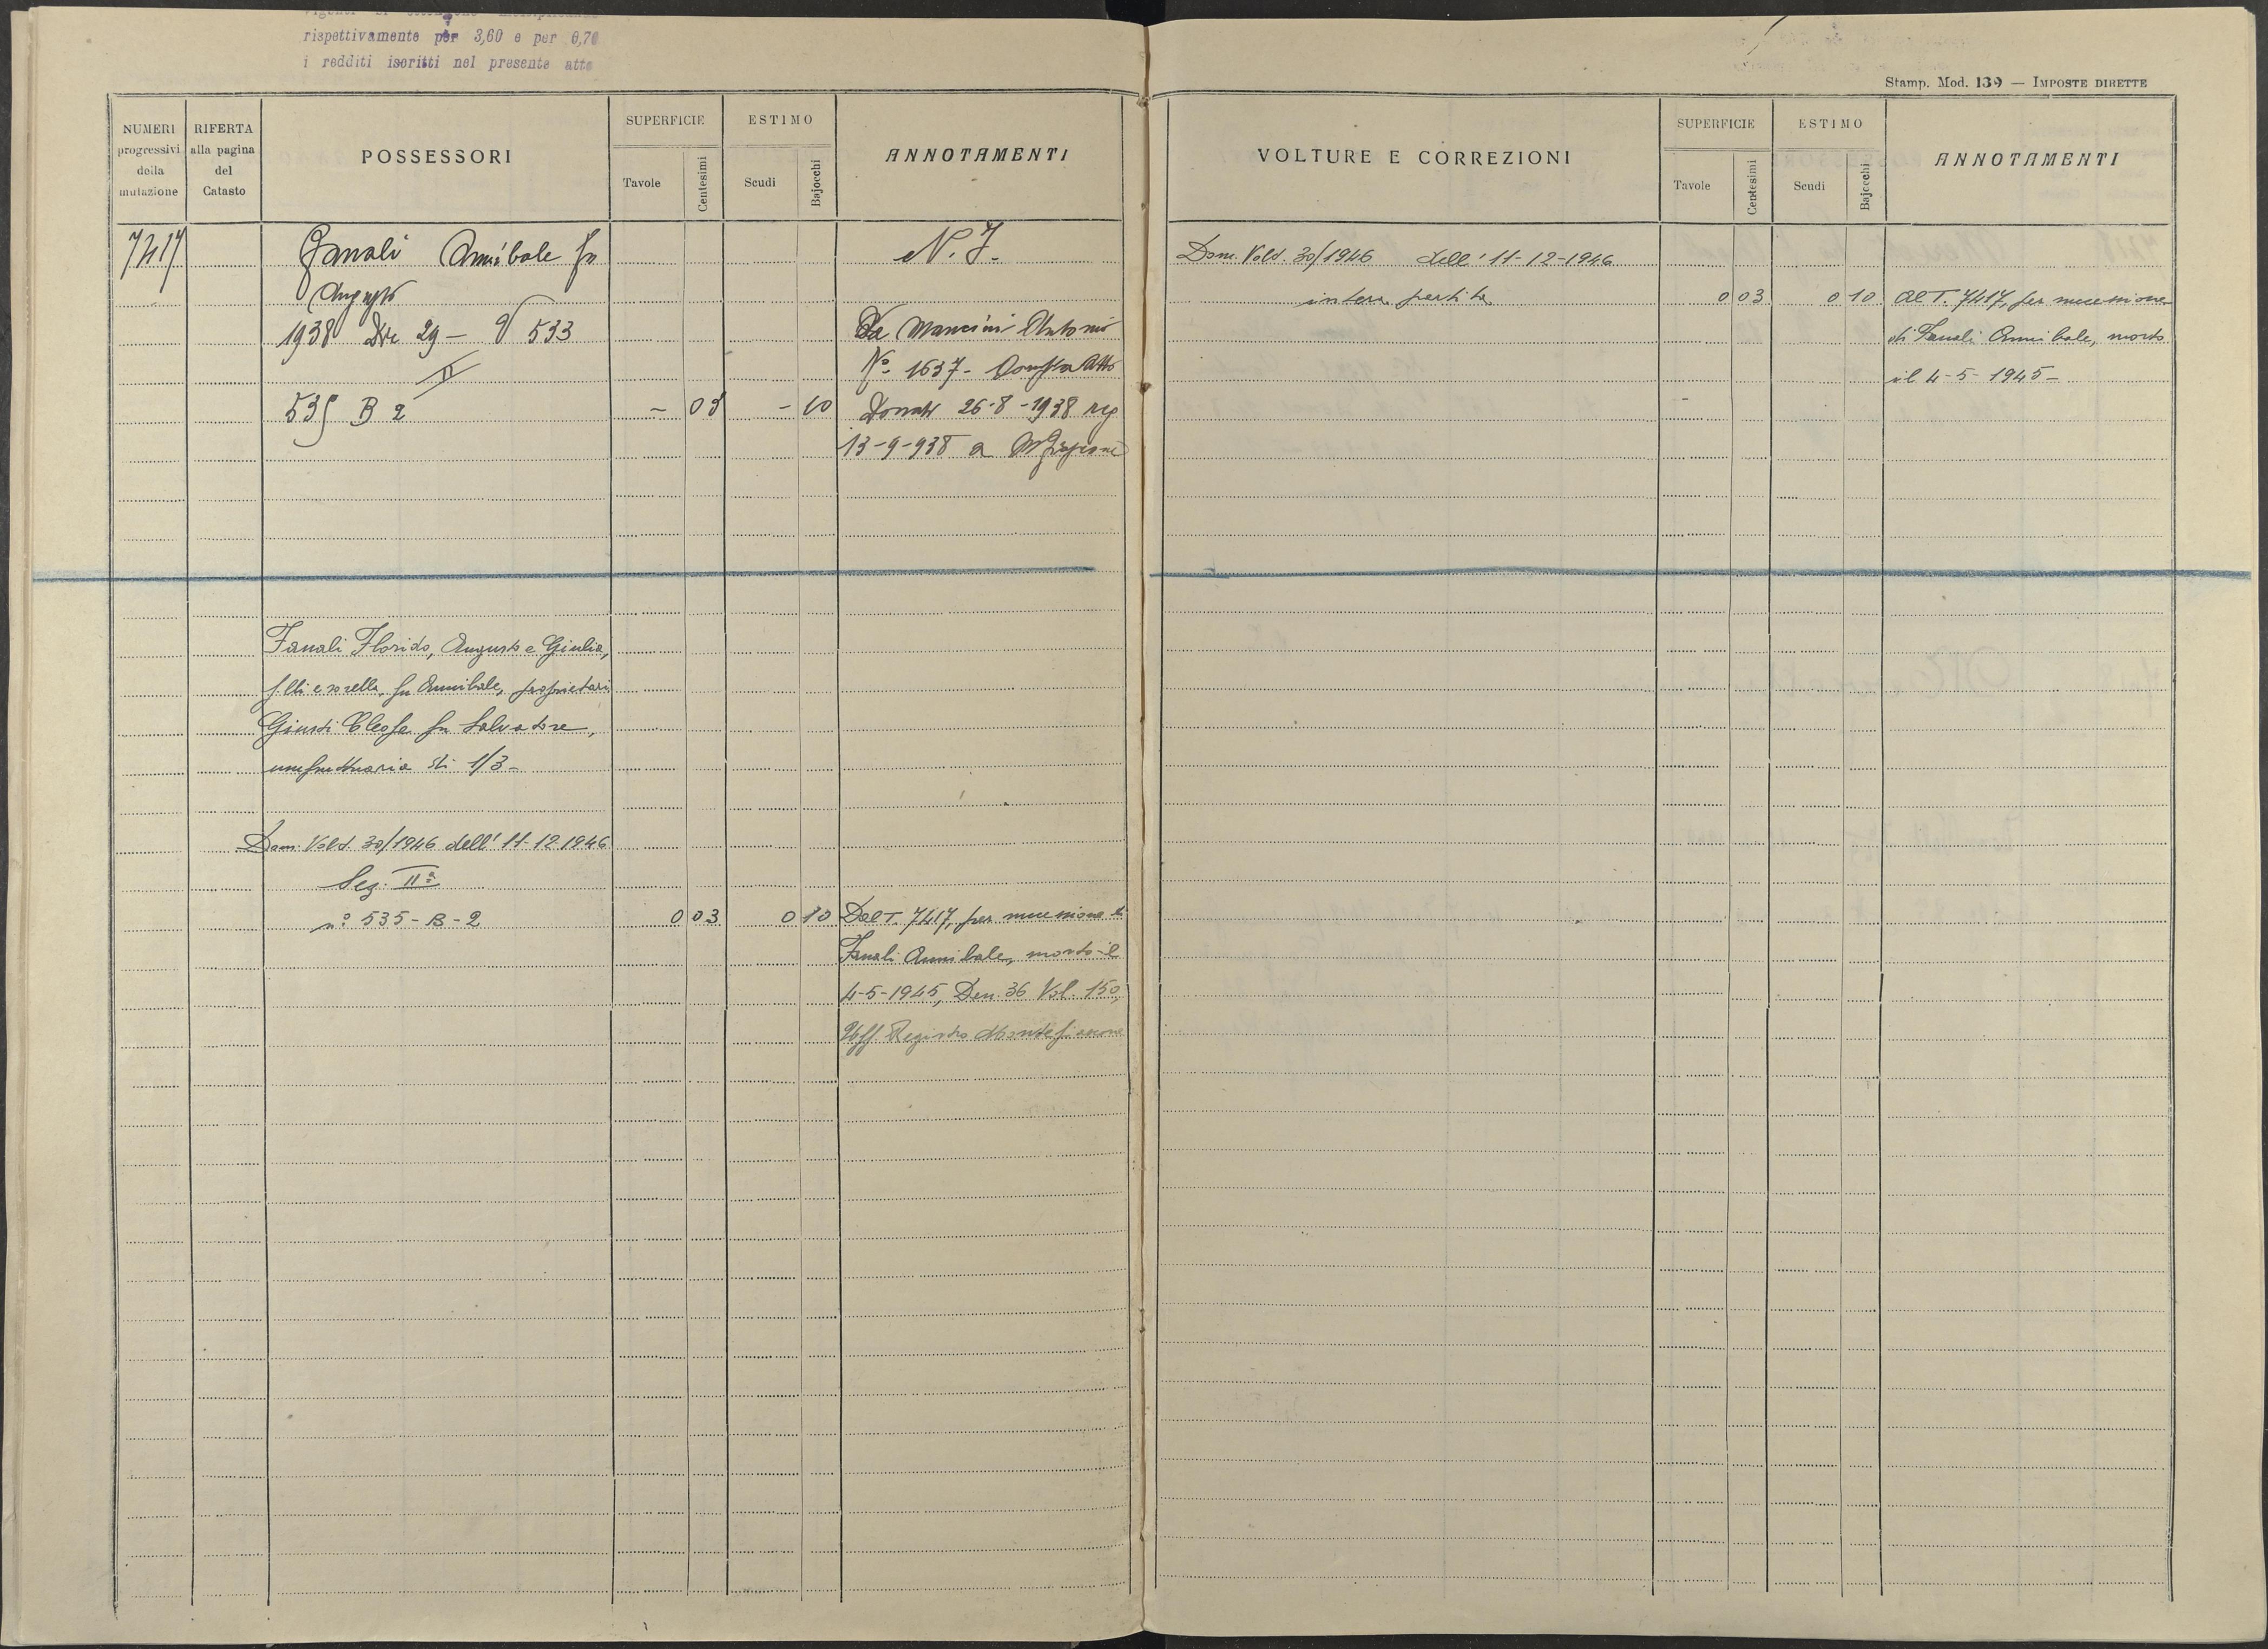 rispettivamente per 3,60 e per 0,70
i redditi iscritti nel presente atto
NUMERI progressivi della mutazione
RIFERTA alla pagina del Catasto
POSSESSORI
SUPERFICIE
Tavole
Centesimi
ESTIMO
Scudi
Bajocchi
ANNOTAMENTI
7417 Fanali Annibale fu N. I.
Augusto
1938 Dre 29 - 9 533 Da Mancini Antonio
II No. 1637 - Compra Atto
535 B 2 - 03 - 10 Donati 26-8-1938 reg
13-9-938 a
Fanali Florido, Augusto e Giulia,
f.lli e sorella, fu Annibale, proprietari
Giusti Cleofe fu Salvatore,
usufruttuaria di 1/3 -
Dom. Volt. 30/1946 dell' 11-12-1946
Sez. IIª
n° 535 - B - 2 0 03 0 10 Dal T. 7417, per successione di
Fanali Annibale, morto il
4-5-1945, Den. 36 Vol. 150,
Uff. Registro Montefiascone
Stamp. Mod. 139 — IMPOSTE DIRETTE
VOLTURE E CORREZIONI
SUPERFICIE
Tavole
Centesimi
ESTIMO
Scudi
Bajocchi
ANNOTAMENTI
Dom. Volt. 30/1946 dell' 11-12-1946
intera partita 0 03 0 10 Al T. 7417, per successione
di Fanali Annibale, morto
il 4-5-1945 -